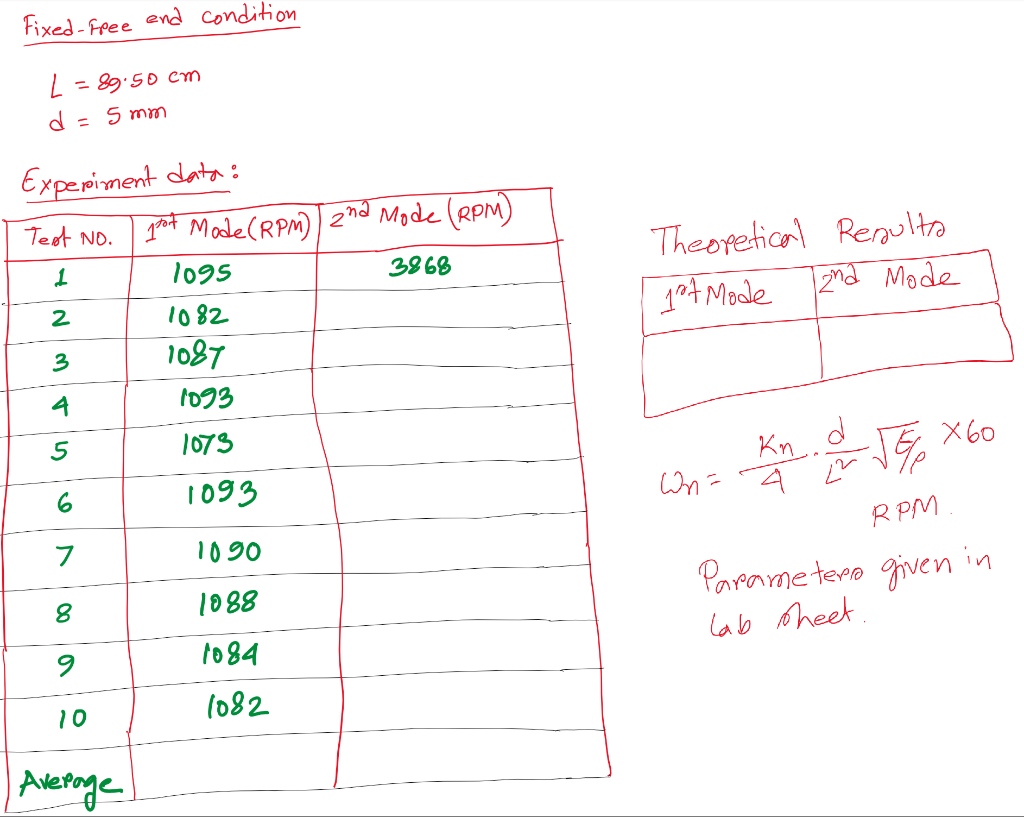 Fixed-Free end condition
L = 89.50 cm
d = 5 mm
Experiment data:
Test NO. 1st Mode (RPM) 2nd Mode (RPM)
1 1095 3868
2 1082
3 1087
4 1093
5 1073
6 1093
7 1090
8 1088
9 1084
10 1082
Average
Theoretical Results
1st Mode 2nd Mode
ωn = Kn/4 · d/L² √E/ρ × 60
RPM.
Parameters given in
lab sheet.